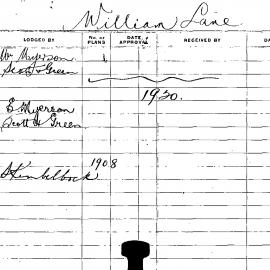 William Lane
LODGED BY No. of PLANS DATE of APPROVAL RECEIVED BY DA
Wm Myerson 1
Scott & Green
1930.
E. Myerson
Scott & Green
1908